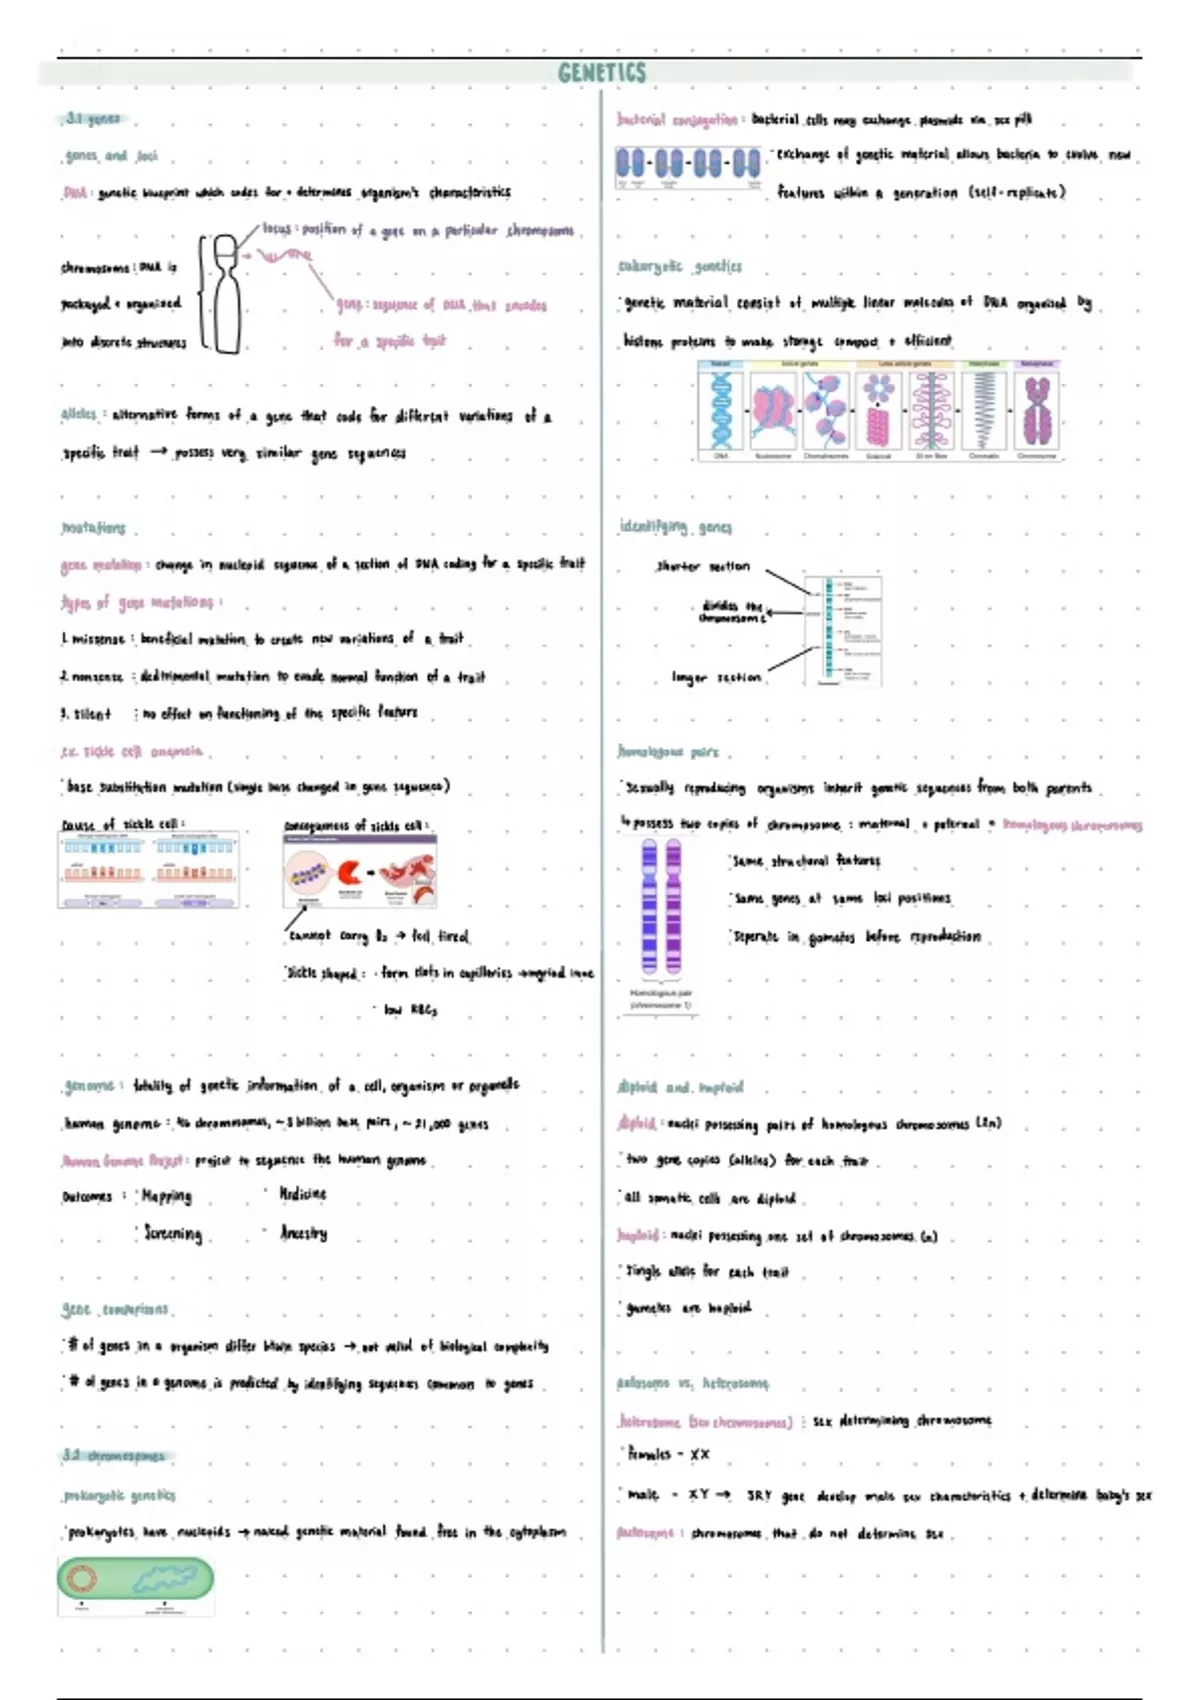 GENETICS
3.1 genes
genes and loci
DNA : genetic blueprint which codes for + determines organism's characteristics
locus : position of a gene on a particular chromosome
chromosome : DNA is
packaged + organized
into discrete structures
gene : sequence of DNA that encodes
for a specific trait
alleles : alternative forms of a gene that code for different variations of a
specific trait → possess very similar gene sequences
mutations
gene mutation : change in nucleoid sequence of a section of DNA coding for a specific trait
types of gene mutations :
1. missense : beneficial mutation to create new variations of a trait
2. nonsense : dedtrimental mutation to evade normal function of a trait
3. silent : no effect on functioning of the specific feature
ex. sickle cell anemia
· base substitution mutation (single base changed in gene sequence)
cause of sickle cell :
consequences of sickle cell :
cannot carry O2 → feel tired
· sickle shaped : · form clots in capillaries →
· low RBCs
genome : totality of genetic information of a cell, organism or organelle
human genome : 46 chromosomes, ~ 3 billion base pairs, ~ 21,000 genes
Human Genome Project : project to sequence the human genome
Outcomes : · Mapping · Medicine
· Screening · Ancestry
gene comparisons
· # of genes in a organism differ btwn species → not valid of biological complexity
· # of genes in a genome is predicted by identifying sequences common to genes
3.2 chromosomes
prokaryotic genetics
· prokaryotes have nucleoids → naked genetic material found free in the cytoplasm
bacterial conjugation : bacterial cells may exchange plasmids via sex pili
· exchange of genetic material allows bacteria to evolve new
features within a generation (self-replicate)
eukaryotic genetics
· genetic material consist of multiple linear molecules of DNA organised by
histone proteins to make storage compact + efficient
DNA Nucleosome Chromatosomes Solenoid 30 nm fibre Chromatin Chromosome
identifying genes
shorter section
divides the
chromosome
longer section
homologous pairs
· sexually reproducing organisms inherit genetic sequences from both parents
↳ possess two copies of chromosome : maternal + paternal = homologous chromosomes
· Same structural features
· Same genes at same loci positions
· Seperate in gametes before reproduction
Homologous pair
(chromosome 1)
diploid and haploid
diploid : nuclei possessing pairs of homologous chromosomes (2n)
· two gene copies (alleles) for each trait
· all somatic cells are diploid
haploid : nuclei possessing one set of chromosomes (n)
· Single allele for each trait
· gametes are haploid
autosome vs. heterosome
heterosome (sex chromosomes) : sex determining chromosome
· females - XX
· male - XY → SRY gene develop male sex characteristics + determine baby's sex
autosome : chromosomes that do not determine sex